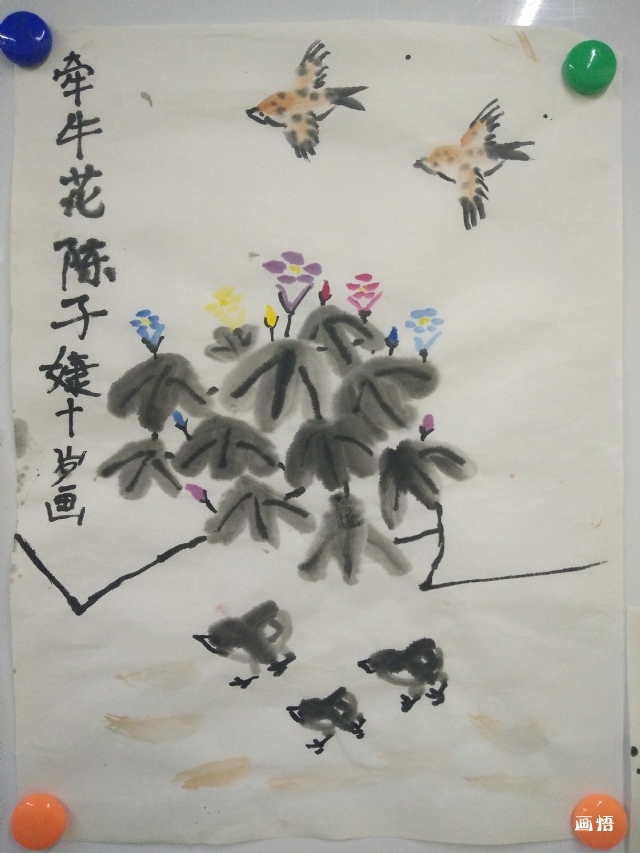 牵牛花 陈子婕十岁画
画悟